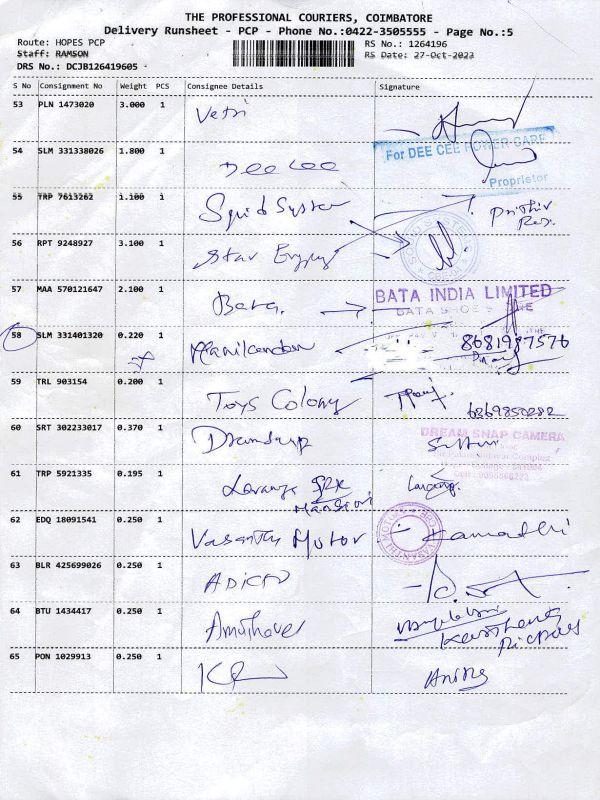 THE PROFESSIONAL COURIERS, COIMBATORE
Delivery Runsheet - PCP - Phone No.:0422-3505555 - Page No.:5
Route: HOPES PCP
RS No.: 1264196
Staff: RAMSON
RS Date: 27-Oct-2023
DRS No.: DCJB126419605
S No Consignment No Weight PCS Consignee Details Signature
53 PLN 1473020 3.000 1 Vetri
54 SLM 331338026 1.800 1 Dee Cee
For DEE CEE POWER CARE
Proprietor
55 TRP 7613262 1.100 1 Squid System
56 RPT 9248927 3.100 1 Star
57 MAA 570121647 2.100 1 Bata
BATA INDIA LIMITED
BATA SHOE STORE
58 SLM 331401320 0.220 1 Manikandan 8681987576
59 TRL 903154 0.200 1 Toys Colony
6369850282
60 SRT 302233017 0.370 1
DREAM SNAP CAMERA
61 TRP 5921335 0.195 1
Mansion
62 EDQ 18091541 0.250 1 Vasanthi Motor
VASANTHI MOTORS
63 BLR 425699026 0.250 1
64 BTU 1434417 0.250 1
65 PON 1029913 0.250 1